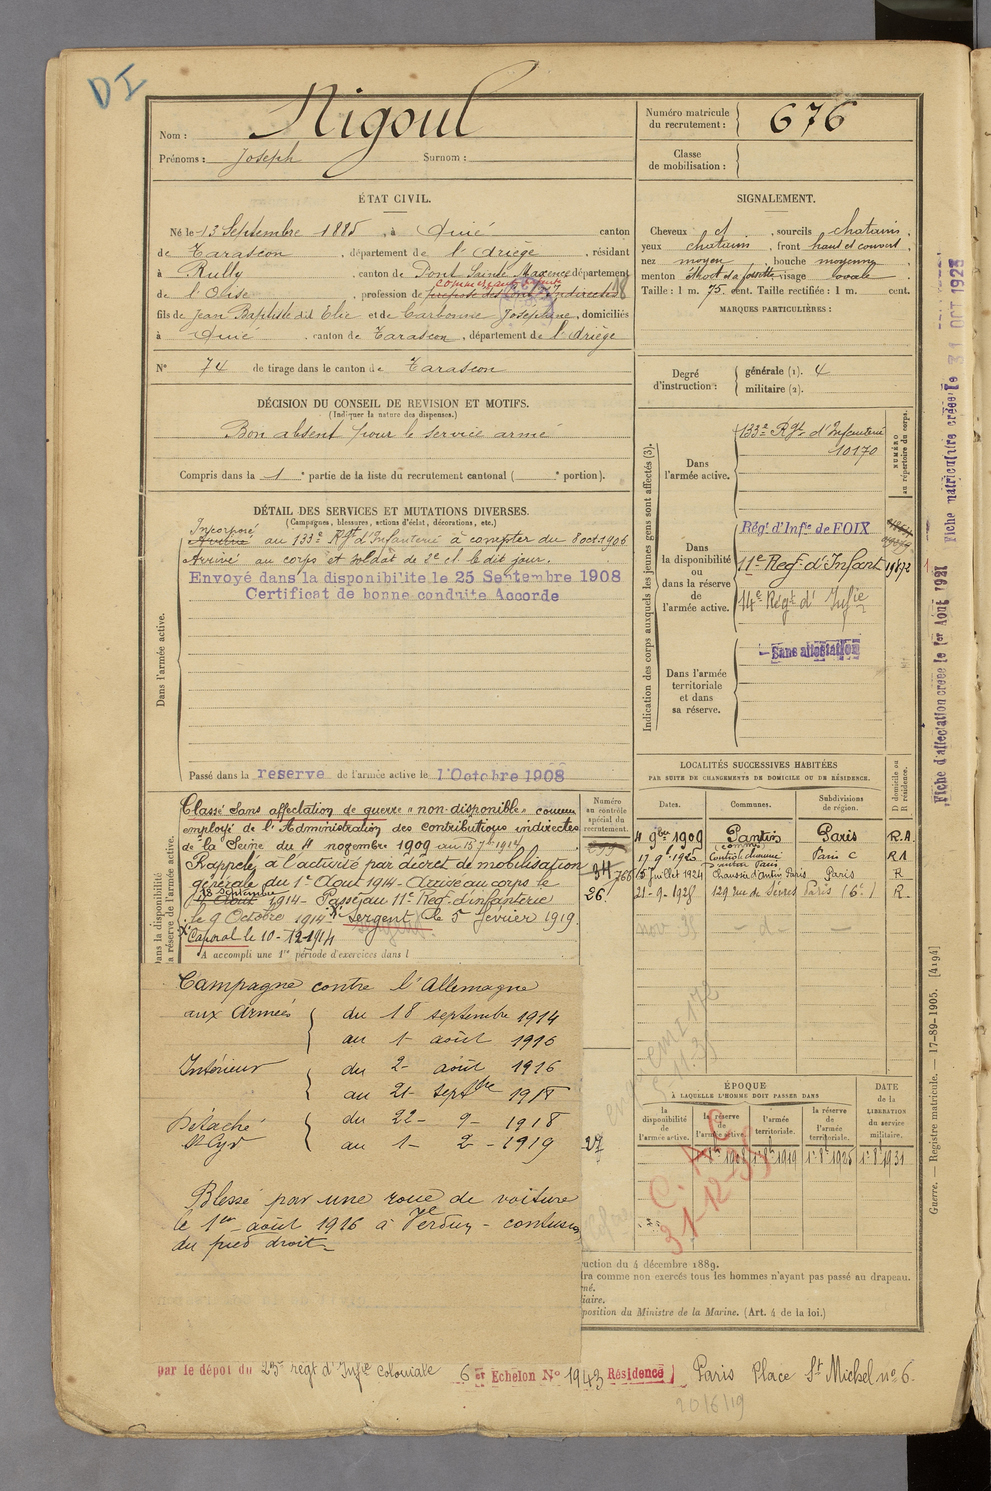 DI
Nom : Nigoul
Prénoms : Joseph Surnom :
Numéro matricule du recrutement : 676
Classe de mobilisation :
ÉTAT CIVIL.
Né le 13 Septembre 1885, à Quié canton
de Tarascon, département de l'Ariège, résidant
à Rully, canton de Pont Sainte Maxence département
de l'Oise, profession de préposé des Contr Indirectes
fils de Jean Baptiste dit Elie et de Carbonne Joséphine, domiciliés
à Quié, canton de Tarascon, département de l'Ariège
N° 74 de tirage dans le canton de Tarascon
SIGNALEMENT.
Cheveux et, sourcils chatains,
yeux chatains, front haut et couvert,
nez moyen, bouche moyenne,
menton étroit et à fossette visage ovale.
Taille : 1 m. 75 cent. Taille rectifiée : 1 m. cent.
MARQUES PARTICULIÈRES :
Degré d'instruction : générale (1). 4
militaire (2).
DÉCISION DU CONSEIL DE REVISION ET MOTIFS.
(Indiquer la nature des dispenses.)
Bon absent pour le service armé
Compris dans la 1e partie de la liste du recrutement cantonal ( e portion).
DÉTAIL DES SERVICES ET MUTATIONS DIVERSES.
(Campagnes, blessures, actions d'éclat, décorations, etc.)
Dans l'armée active.
Incorporé
Arrivé au 133e Rgt d'Infanterie à compter du 8 oct. 1906
Arrivé au corps et soldat de 2e cl. le dit jour.
Envoyé dans la disponibilite le 25 Septembre 1908
Certificat de bonne conduite Accorde
Passé dans la reserve de l'armée active le 1'Octobre 1908
Indication des corps auxquels les jeunes gens sont affectés (3).
NUMÉRO au répertoire du corps.
Dans l'armée active.
133e Rgt d'Infanterie
10170
Dans la disponibilité ou dans la réserve de l'armée active.
Régt d'Infie de FOIX
11e Reg. d'Infant 19172
14e Régt d'Infie
Dans l'armée territoriale et dans sa réserve.
Sans affectation
Fiche matriculaire créée le 31 OCT 1923
Fiche d'affectation créée le 1er Août 1921
Dans la disponibilité
la réserve de l'armée active.
Numéro au contrôle spécial du recrutement.
Classé Sans affectation de guerre "non-disponible" comme
employé de l'Administration des contributions indirectes
de la Seine du 4 novembre 1909 au 15 7bre 1914
Rappelé à l'activité par décret de mobilisation
générale du 1er Aout 1914 - Arrivé au corps le
18 Septembre
Aout 1914 - Passé au 11e Reg. d'infanterie
le 9 Octobre 1914. Sergent le 5 fevrier 1919.
Caporal le 10-12-1914
A accompli une 1re période d'exercices dans l
34
766
26
27
LOCALITÉS SUCCESSIVES HABITÉES
PAR SUITE DE CHANGEMENTS DE DOMICILE OU DE RÉSIDENCE.
Dates. Communes. Subdivisions de région. D domicile ou R résidence.
4 9bre 1909 Pantin Paris R.A.
Paris C RA
15 Juillet 1924 Paris R
21-9-1928 129 rue de Sèvres Paris (6e) R
nov. 35 - d° - -
Campagne contre l'Allemagne
aux Armées du 18 septembre 1914
au 1 - août 1916
Intérieur du 2 - août 1916
au 21 - septbre 1918
Détaché du 22 - 9 - 1918
St Cyr au 1 - 2 - 1919
Blessé par une roue de voiture
le 1er août 1916 à Verdun - contusion
du pied droit
ÉPOQUE
À LAQUELLE L'HOMME DOIT PASSER DANS
la disponibilité de l'armée active. la réserve de l'armée active. l'armée territoriale. la réserve de l'armée territoriale.
DATE de la LIBÉRATION du service militaire.
C. AC
31-12-35
ruction du 4 décembre 1889.
dra comme non exercés tous les hommes n'ayant pas passé au drapeau.
né.
liaire.
position du Ministre de la Marine. (Art. 4 de la loi.)
Guerre. — Registre matricule. — 17-89-1905. [4194]
par le dépôt du 23e régt d'Infie coloniale 6 er Echelon No 1943 Résidence) Paris Place St Michel no 6.
20/6/19